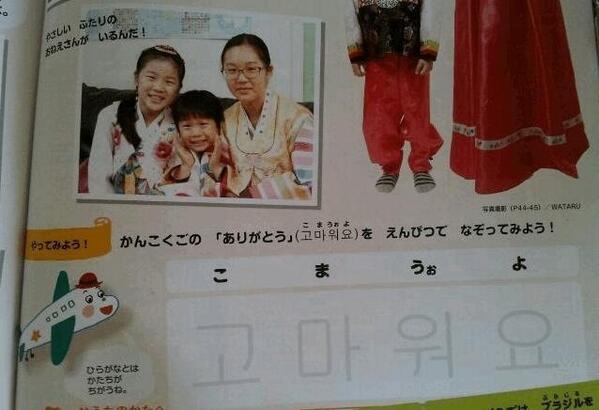 やさしい ふたりの
おねえさんが いるんだ!
写真撮影(P44-45)/WATARU
やってみよう!
かんこくごの 「ありがとう」(고마워요)を えんぴつで なぞってみよう!
こ まうぉよ
こ ま うぉ よ
고 마 워 요
ひらがなとは
かたちが
ちがうね。
ぶらじる
ブラジルを